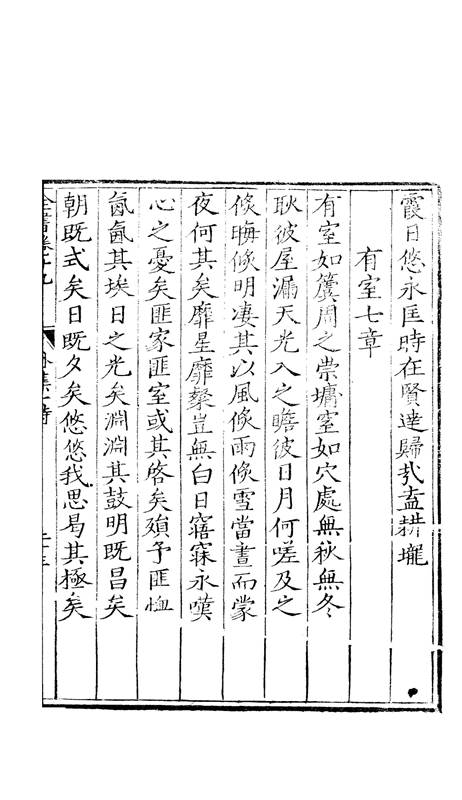 霞日悠永匡時在賢達歸哉盍耕壠
有室七章
有室如簴周之崇墉窒如穴處無秋無冬
耿彼屋漏天光入之瞻彼日月何嗟及之
倐晦倐明凄其以風倐雨倐雪當晝而蒙
夜何其矣靡星靡粲豈無白日寤寐永嘆
心之憂矣匪家匪室或其啓矣殞予匪恤
氤氳其埃日之光矣淵淵其鼓明既昌矣
朝既式矣日既夕矣悠悠我思曷其極矣
全書卷十九 外集一 詩